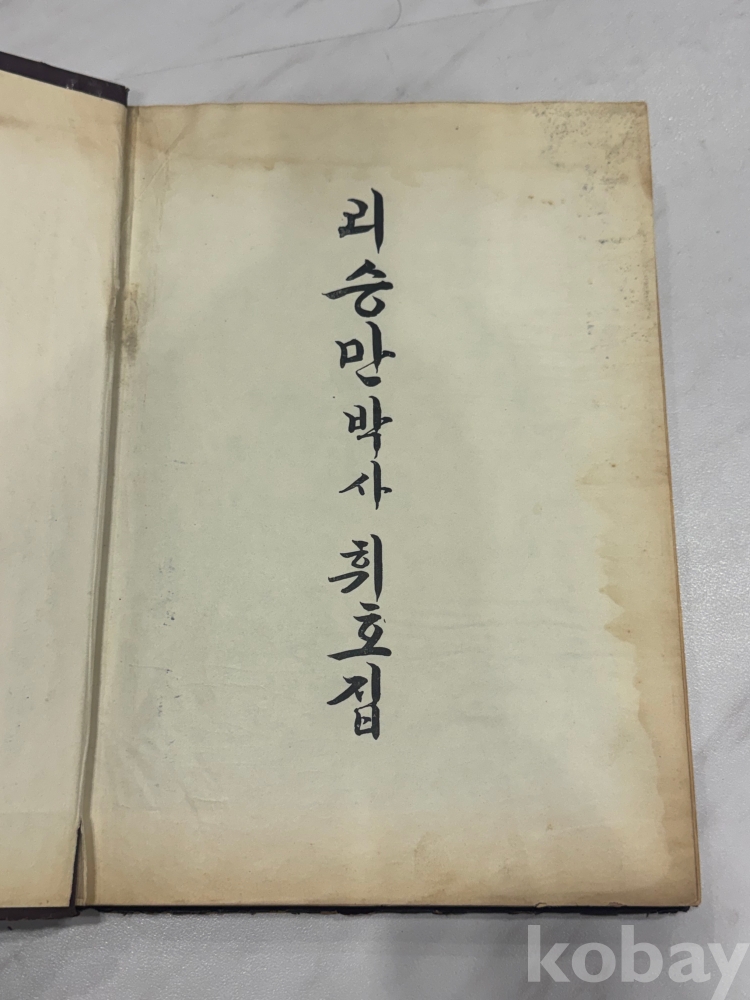 리승만박사 휘호집
kobay